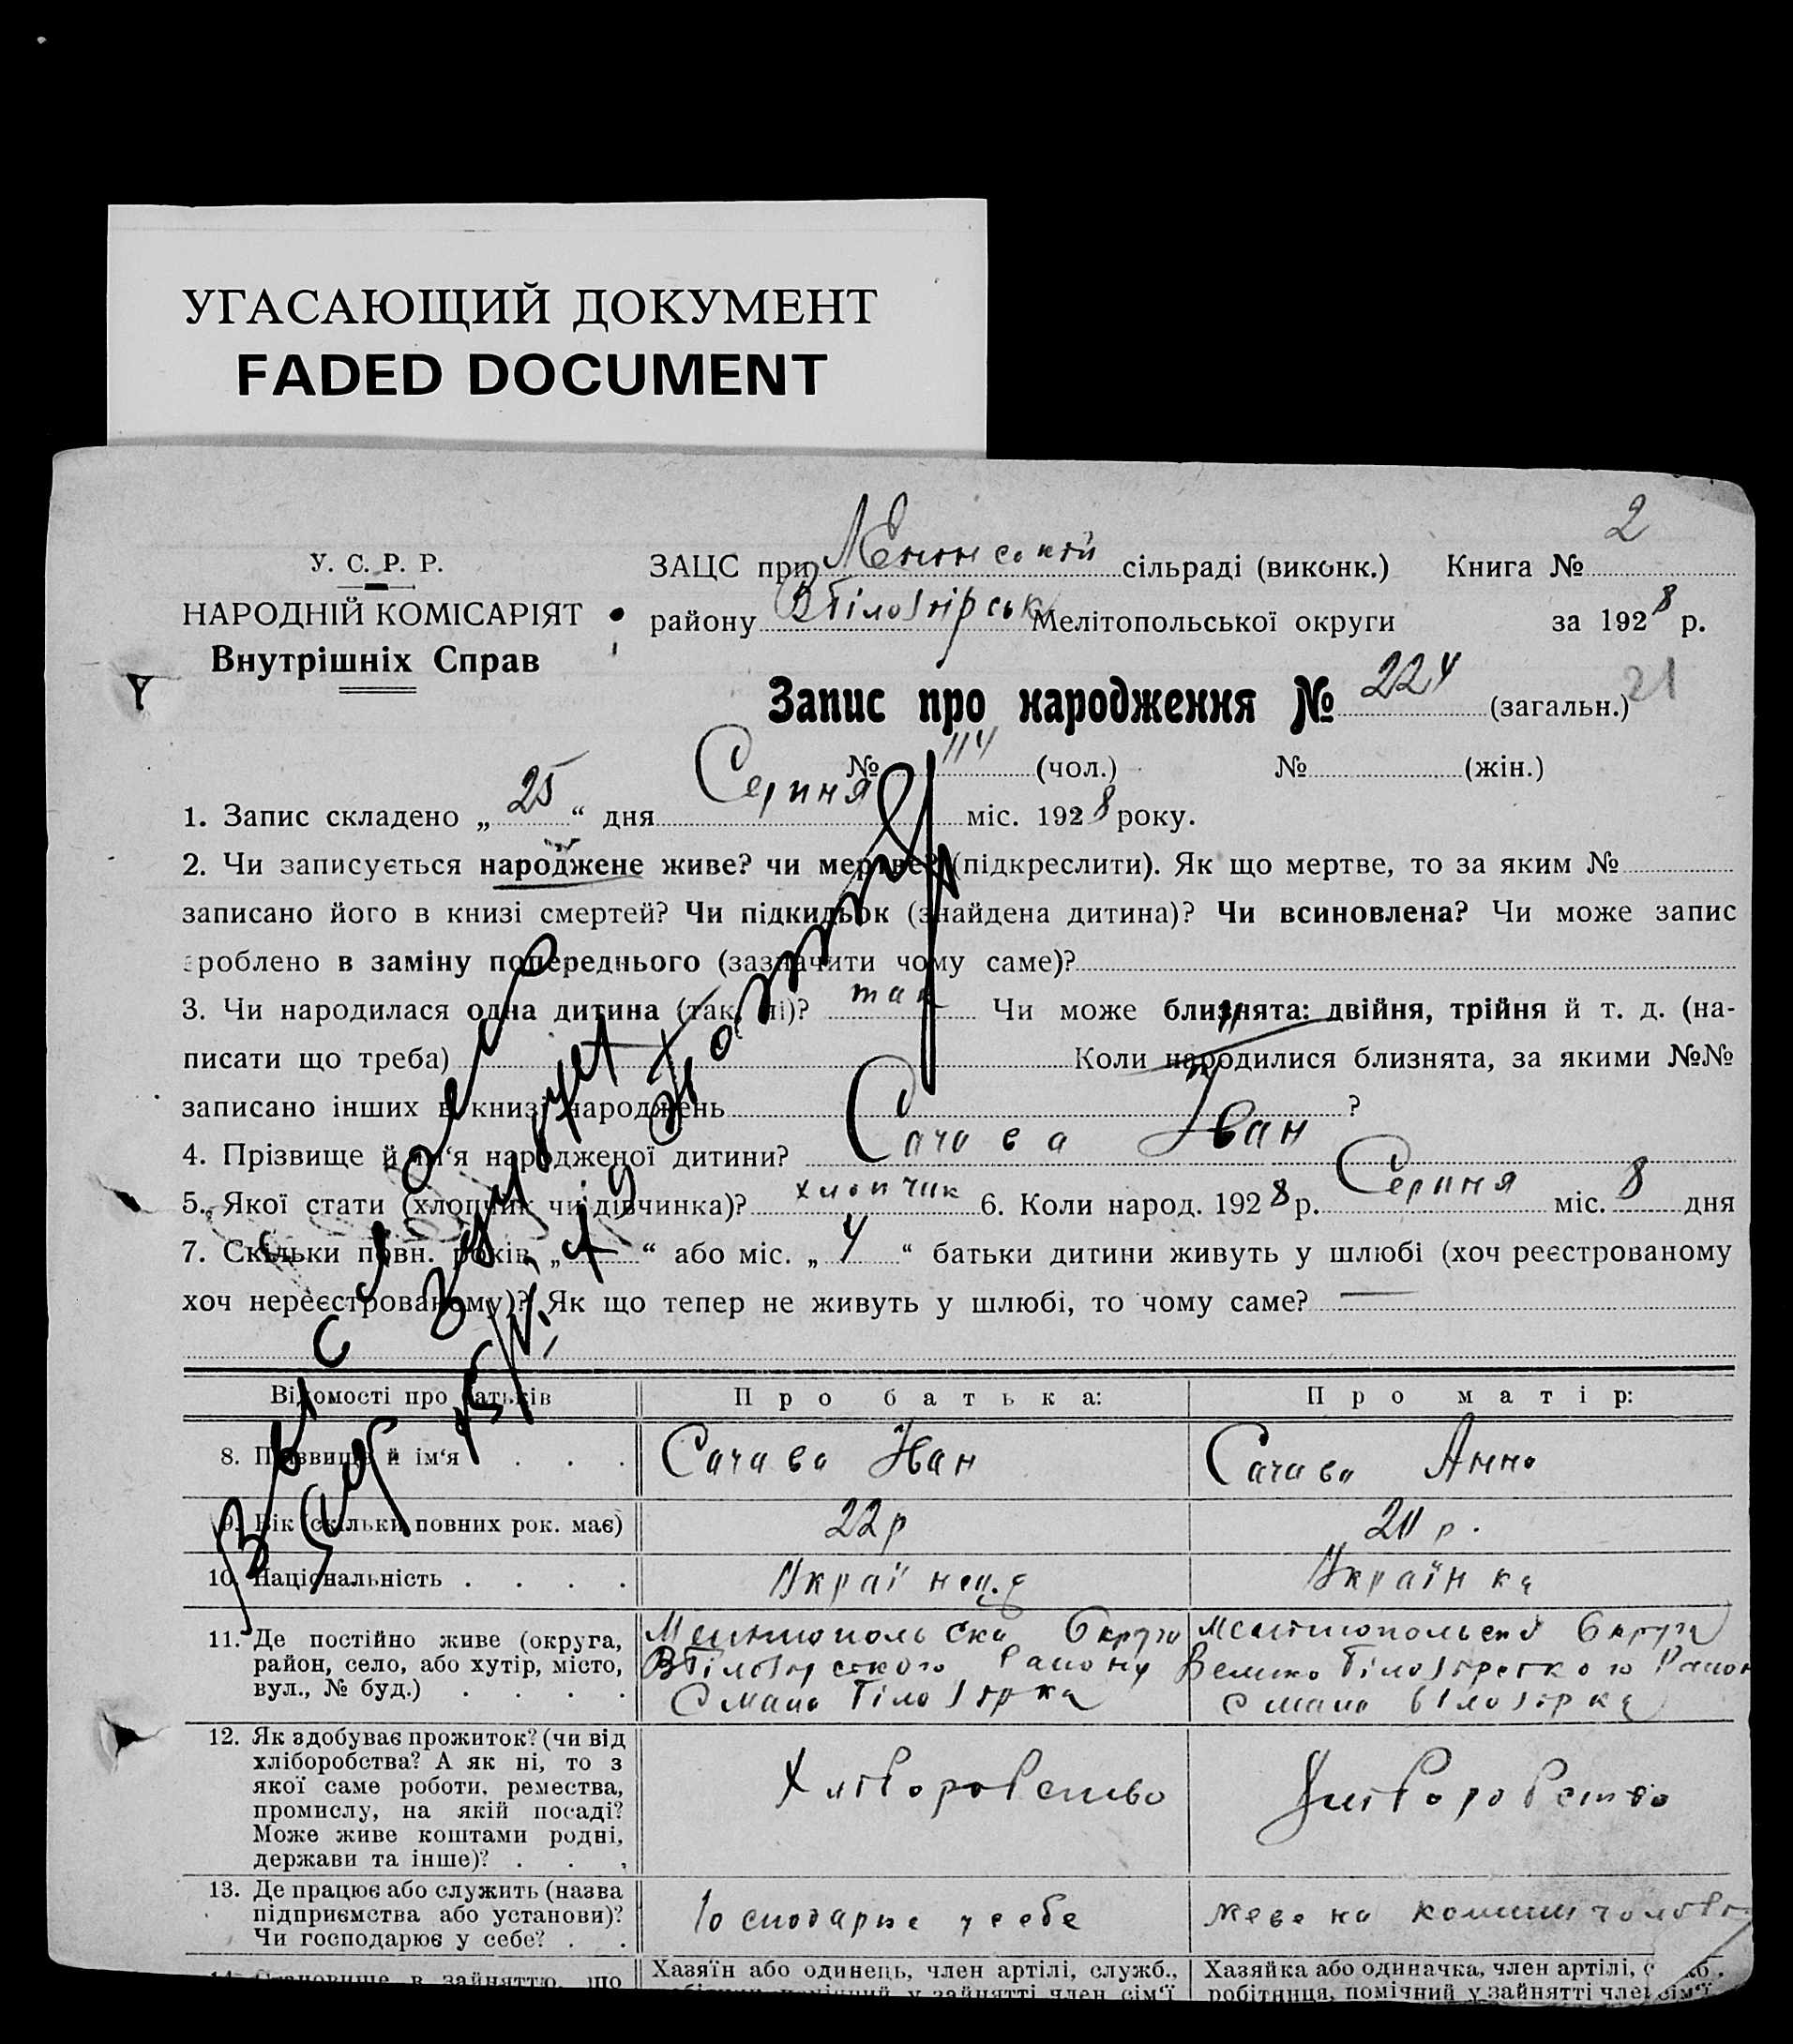 УГАСАЮЩИЙ ДОКУМЕНТ
FADED DOCUMENT
2
У. С. Р. Р.
НАРОДНІЙ КОМІСАРІЯТ
Внутрішніх Справ
ЗАЦС при сільраді (виконк.) Книга №
району ВБілозірськ Мелітопольської округи за 1928 р.
Запис про народження № 224 (загальн.) 21
№ 114 (чол.) № (жін.)
1. Запис складено „ 25 “ дня Серпня міс. 1928 року.
2. Чи записується народжене живе? чи мертве? (підкреслити). Як що мертве, то за яким №
записано його в книзі смертей? Чи підкидьок (знайдена дитина)? Чи всиновлена? Чи може запис
зроблено в заміну попереднього (зазначити чому саме)?
3. Чи народилася одна дитина (так, ні)? так Чи може близнята: двійня, трійня й т. д. (на-
писати що треба) Коли народилися близнята, за якими №№
записано інших в книзі народжень ?
4. Прізвище й ім‘я народженої дитини? Сачава Іван
5. Якої стати (хлопчик чи дівчинка)? хлопчик 6. Коли народ. 1928 р. Серпня міс. 8 дня
7. Скільки повн. років „ “ або міс. „ 4 “ батьки дитини живуть у шлюбі (хоч реєстрованому
хоч нереєстрованому)? Як що тепер не живуть у шлюбі, то чому саме? —
Відомості про батьків Про батька: Про матір:
8. Прізвище й ім‘я . . . Сачава Іван Сачава Анна
9. Вік (скільки повних рок. має) 22 р 20 р.
10. Національність . . . . Украінец Украінка
11. Де постійно живе (округа, район, село, або хутір, місто, вул., № буд.) . . . .
Мелитопольска Округа
ВБілозірского Району
С Мало Білозірка
Мелитопольска Округа
Велико Білозірского Район
С мала білозірка
12. Як здобуває прожиток? (чи від хліборобства? А як ні, то з якої саме роботи, ремества, промислу, на якій посаді? Може живе коштами родні, держави та інше)? . . .
Хліборобство
Хліборобство
13. Де працює або служить (назва підприємства або установи)? Чи господарює у себе? . .
Господарює у себе
живе на кошти
14. Становище в зайняттю, що
Хазяїн або одинець, член артілі, служб.,
робітник, помічний у зайнятті член сім‘ї
Хазяйка або одиначка, член артілі, служб.,
робітниця, помічний у зайнятті член сім‘ї